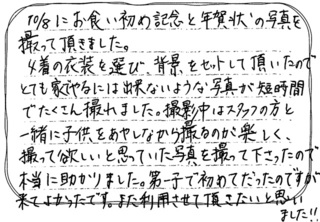 10/8にお食い初め記念と年賀状の写真を
撮って頂きました。
4着の衣装を選び、背景をセットして頂いたので
とても家でやるには出来ないような写真が短時間
でたくさん撮れました。撮影中はスタッフの方と
一緒に子供をあやしながら撮るのが楽しく、
撮って欲しいと思っていた写真を撮って下さったので
本当に助かりました。第一子で初めてだったのですが
来てよかったです。また利用させて頂きたいと思い
ました!!